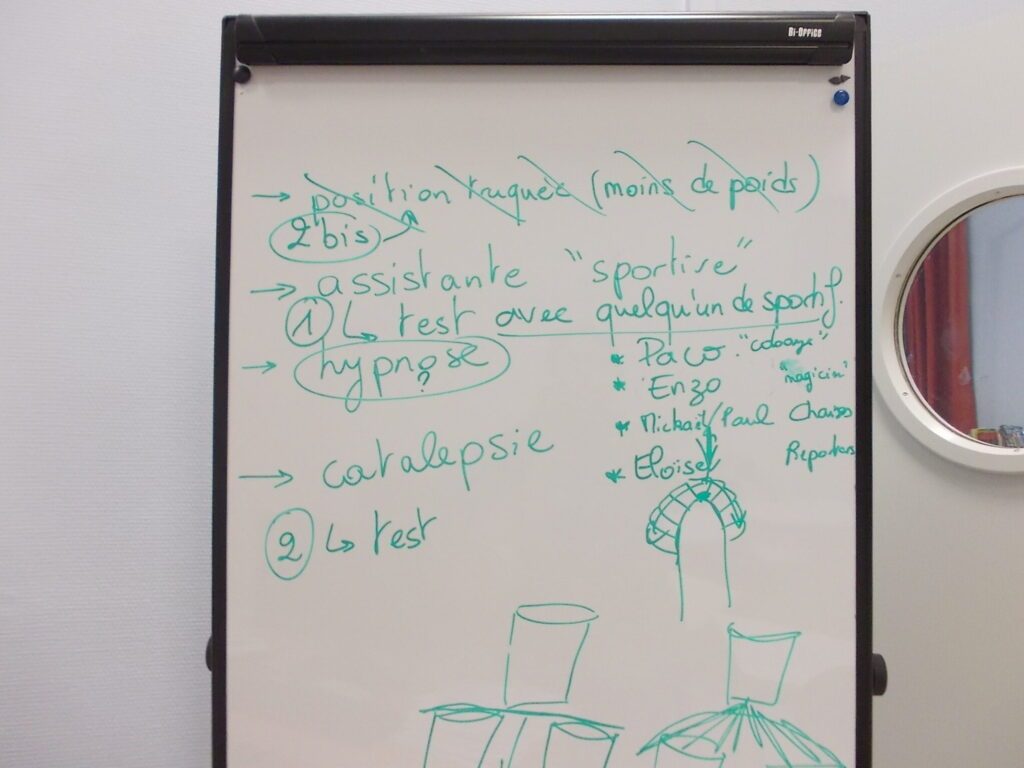 Bi-Office
→ position truquée (moins de poids)
2 bis
→ assistante "sportive"
① ↳ test avec quelqu'un de sportif.
→ hypnose
?
* Paco "cobaye"
* Enzo "magicien"
* Mickaël/Paul Chaises
* Eloïse Reporters
→ catalepsie
② ↳ test